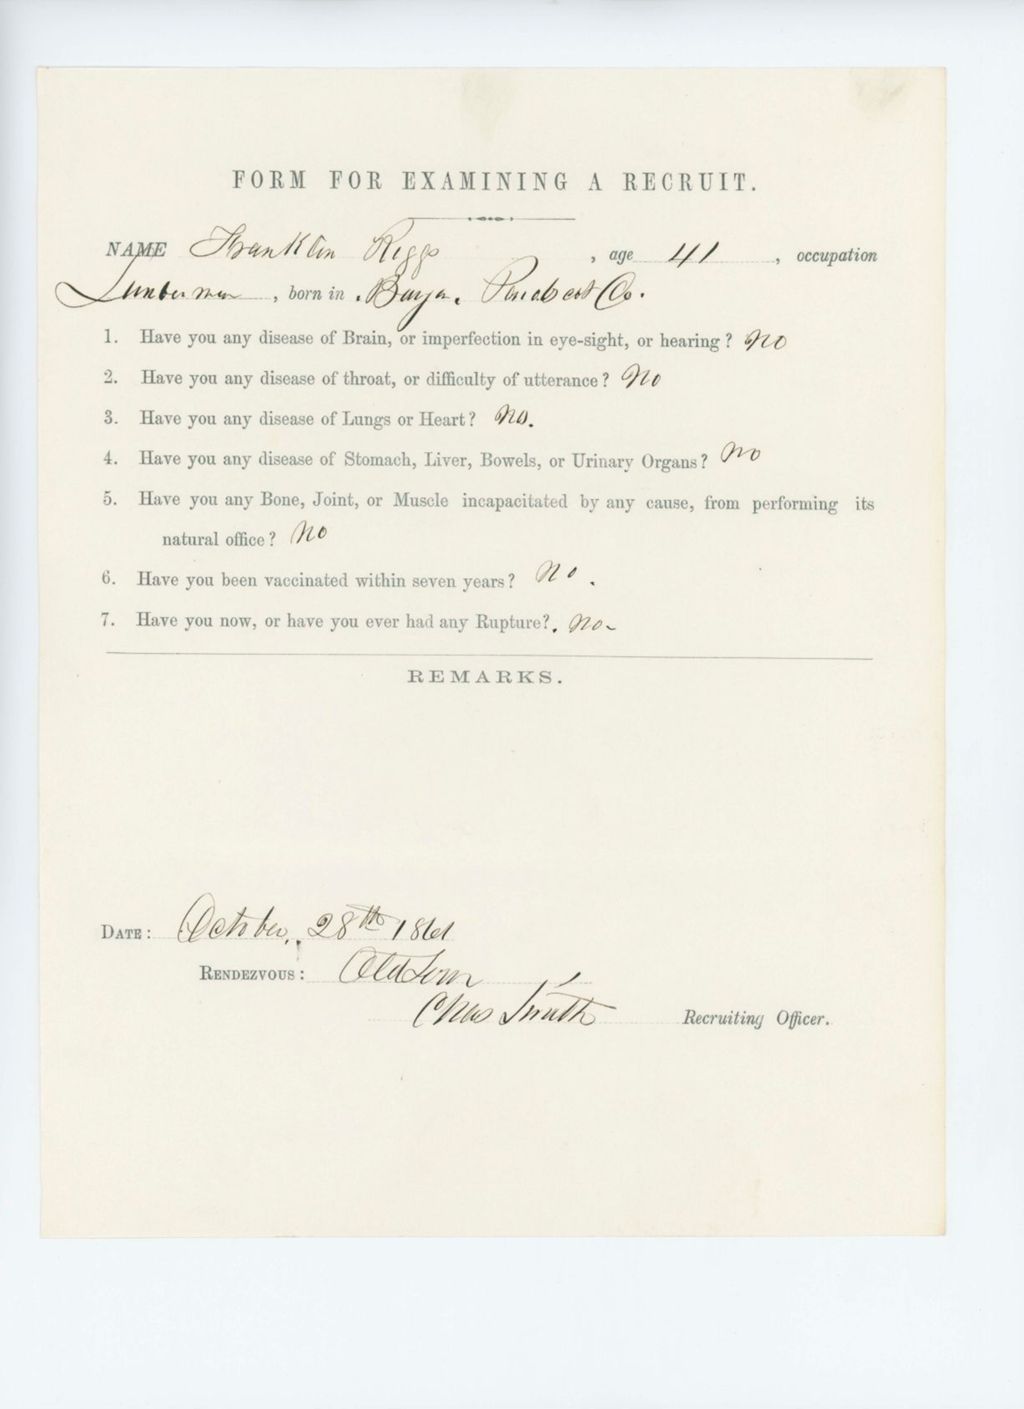 FORM FOR EXAMINING A RECRUIT.
NAME Franklin Riggs, age 41, occupation
Lumberman, born in Co.
1. Have you any disease of Brain, or imperfection in eye-sight, or hearing? No
2. Have you any disease of throat, or difficulty of utterance? No
3. Have you any disease of Lungs or Heart? No.
4. Have you any disease of Stomach, Liver, Bowels, or Urinary Organs? No
5. Have you any Bone, Joint, or Muscle incapacitated by any cause, from performing its
natural office? No
6. Have you been vaccinated within seven years? No.
7. Have you now, or have you ever had any Rupture? No
REMARKS.
DATE: October, 28th 1861
RENDEZVOUS: Old Town
Chas Smith Recruiting Officer.